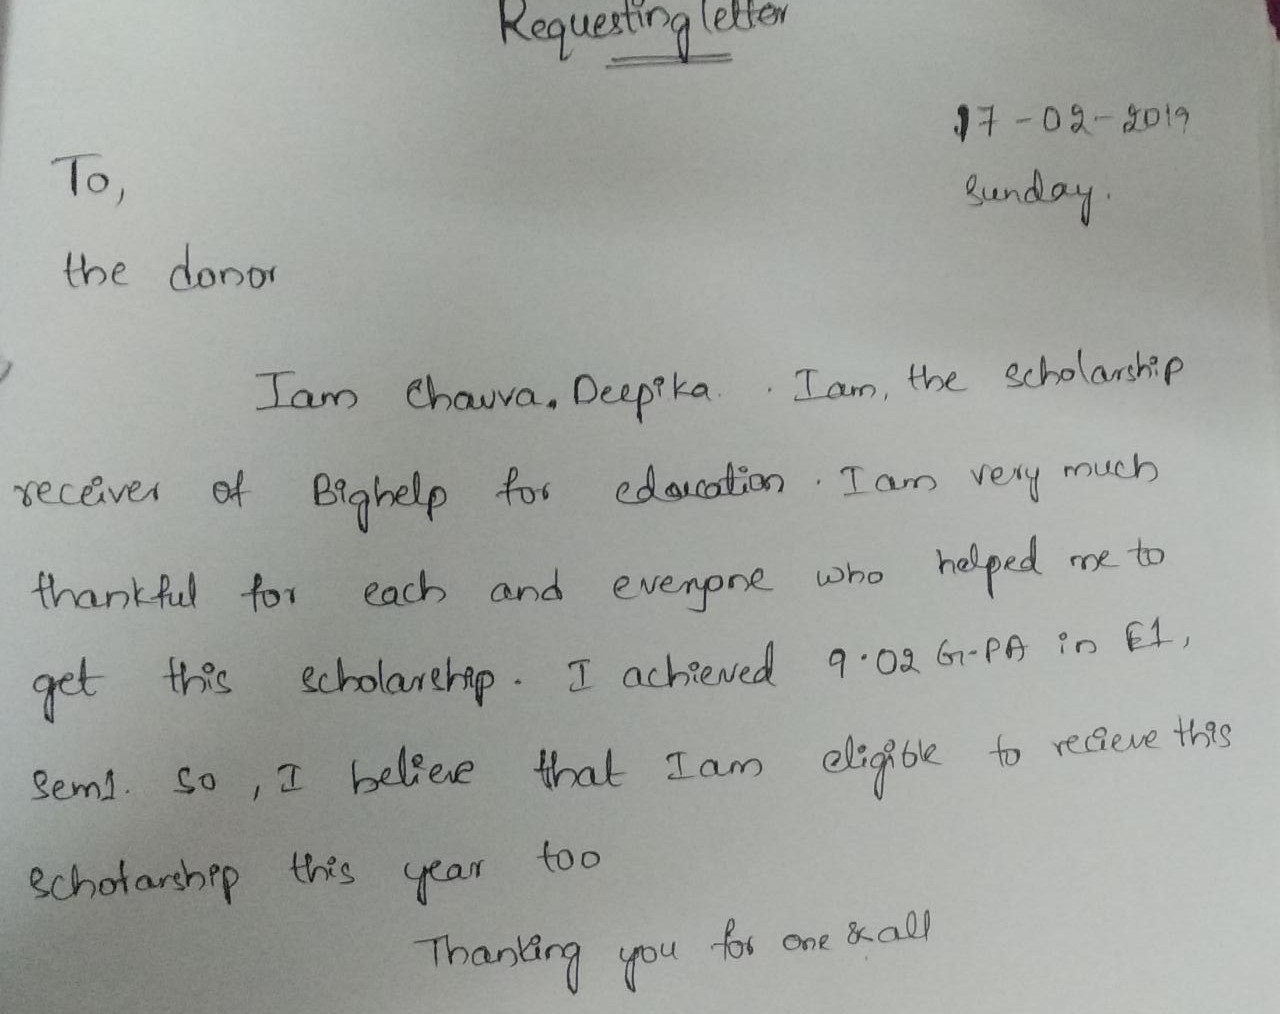 Requesting letter
17-02-2019
Sunday.
To,
the donor
Iam Chavva. Deepika. . Iam, the scholarship
receiver of Bighelp for education. I am very much
thankful for each and everyone who helped me to
get this scholarship. I achieved 9.02 G-PA in E1,
Sem1. So, I believe that Iam eligible to recieve this
scholarship this year too
Thanking you for one & all